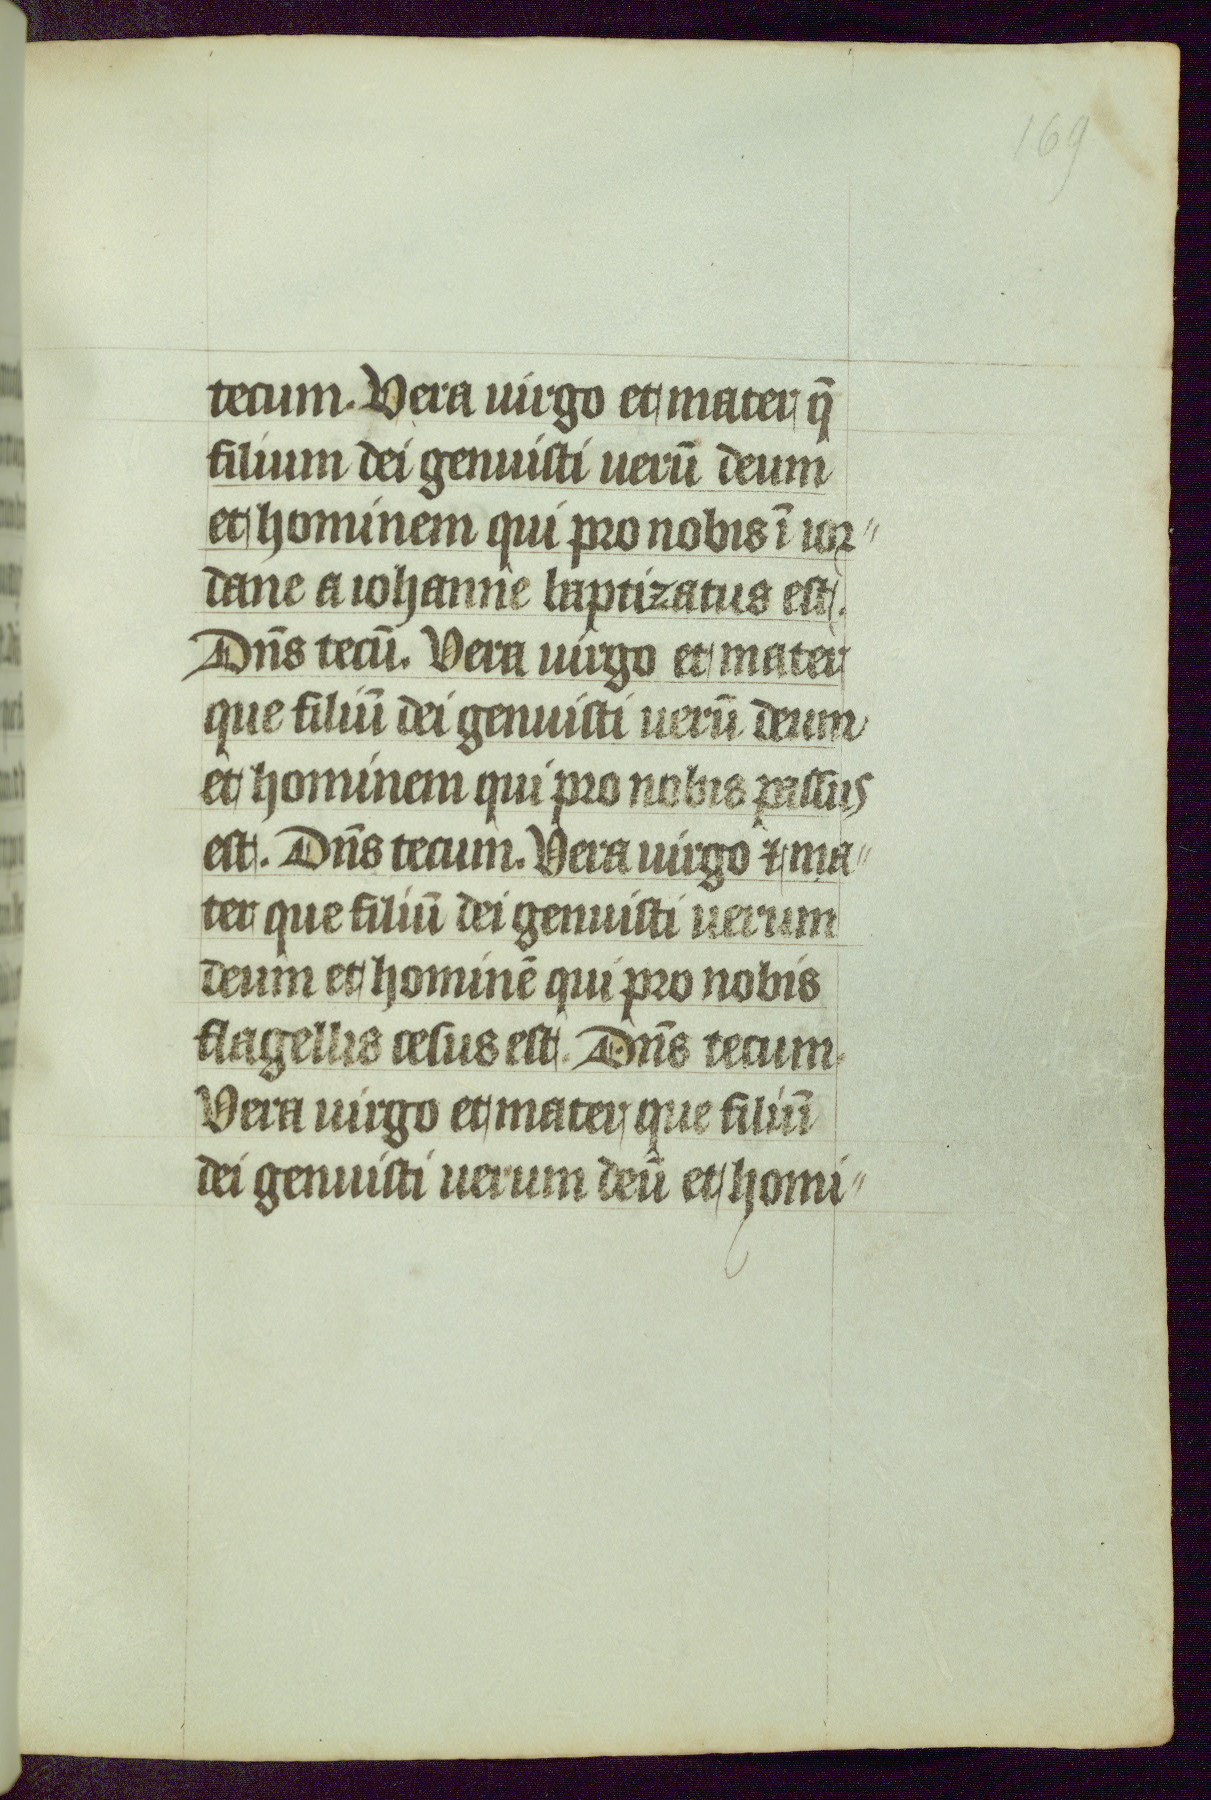 169
tecum. Vera uirgo et mater q̄
filium dei genuisti uerū deum
et hominem qui pro nobis ī ior〃
dane a iohanne baptizatus est.
Dn̄s tecū. Vera uirgo et mater
que filiū dei genuisti uerū deum
et hominem qui pro nobis passus
est. Dn̄s tecum. Vera uirgo ⁊ ma〃
ter que filiū dei genuisti uerum
deum et hominē qui pro nobis
flagellis cesus est. Dn̄s tecum.
Vera uirgo et mater que filiū
dei genuisti uerum deū et homi〃